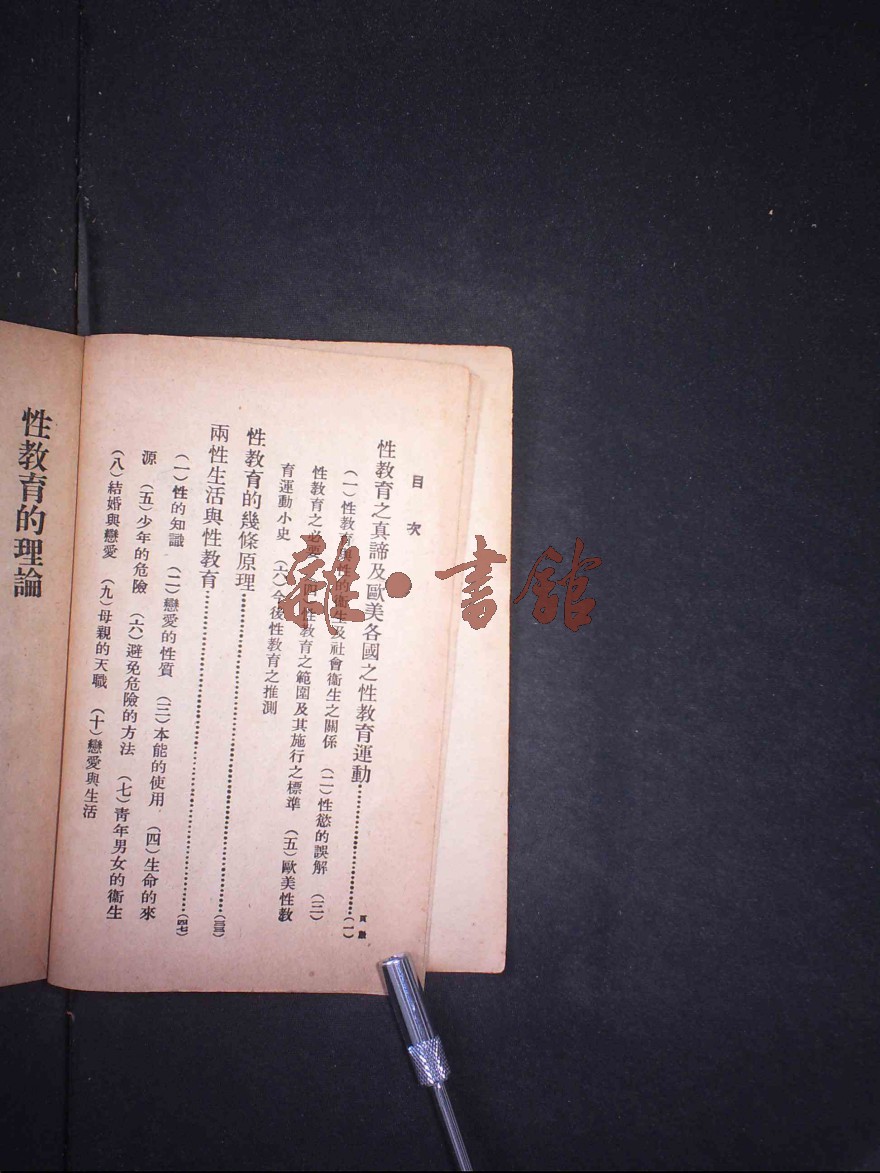 目次
頁數
性教育之真諦及歐美各國之性教育運動……(一)
(一)性教育與性的衞生及社會衞生之關係 (二)性慾的誤解 (三)
性教育之必要 (四)性教育之範圍及其施行之標準 (五)歐美性教
育運動小史 (六)今後性教育之推測
性教育的幾條原理……(三三)
兩性生活與性教育……(四七)
(一)性的知識 (二)戀愛的性質 (三)本能的使用 (四)生命的來
源 (五)少年的危險 (六)避免危險的方法 (七)靑年男女的衞生
(八)結婚與戀愛 (九)母親的天職 (十)戀愛與生活
性教育的理論
雜·書館